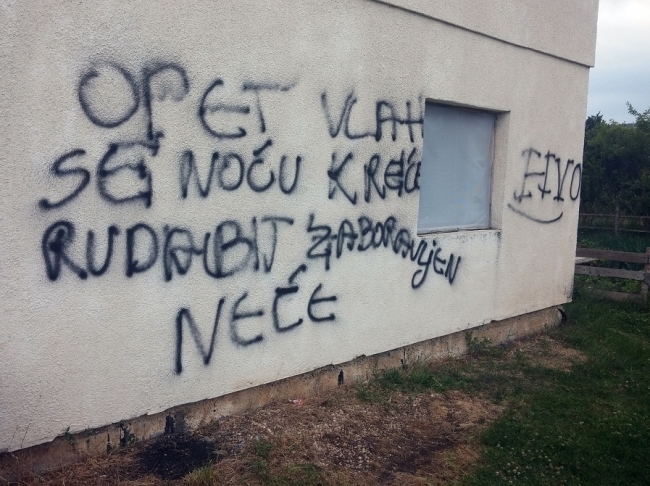 OPET VLAH
SE NOĆU KREĆE
RUDA BIT ZABORAVLJEN
NEĆE